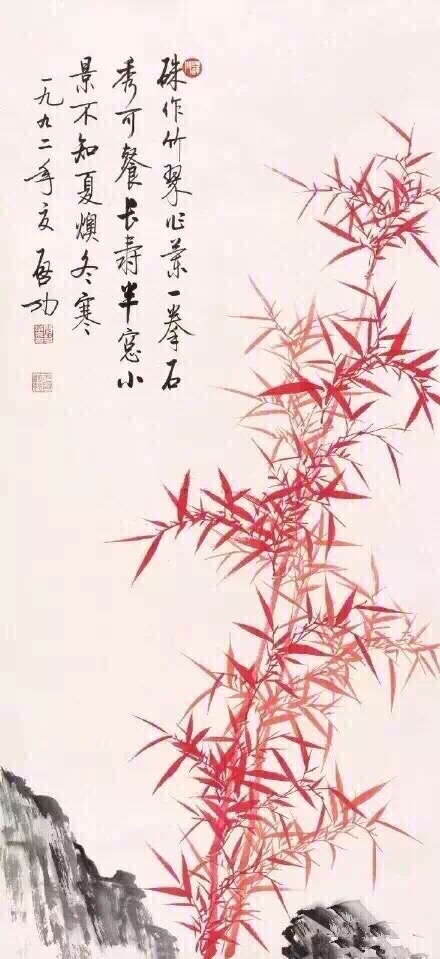 硃作竹翠作葉一拳石
秀可餐长壽半窓小
景不知夏燠冬寒
一九九二年夏 启功